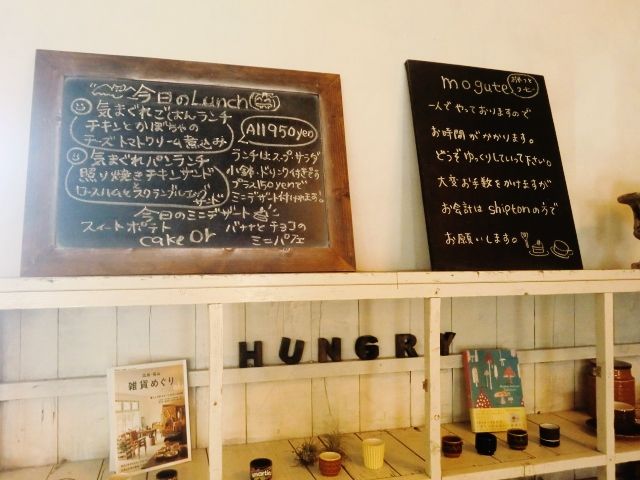 今日のLunch
気まぐれごはんランチ
チキンとかぼちゃの
チーズトマトクリーム煮込み
気まぐれパンランチ
照り焼きチキンサンド
ロースハムとスクランブルエッグ
サンド
All 950yen
ランチはスープ・サラダ
小鉢・ドリンク付きです
プラス150yenで
ミニデザート付けれます!
今日のミニデザート
スイートポテト
cake or
バナナとチョコの
ミニパフェ
mogutel
おやつと
コーヒー
一人でやっておりますので
お時間がかかります。
どうぞゆっくりしていって下さい。
大変お手数をかけますが
お会計はshiptonのうで
お願いします。
HUNGRY
雑貨めぐり